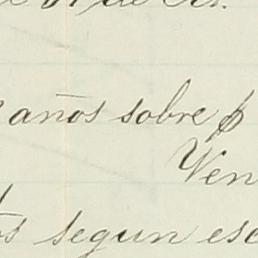 años sobre $
Ven
segun esc